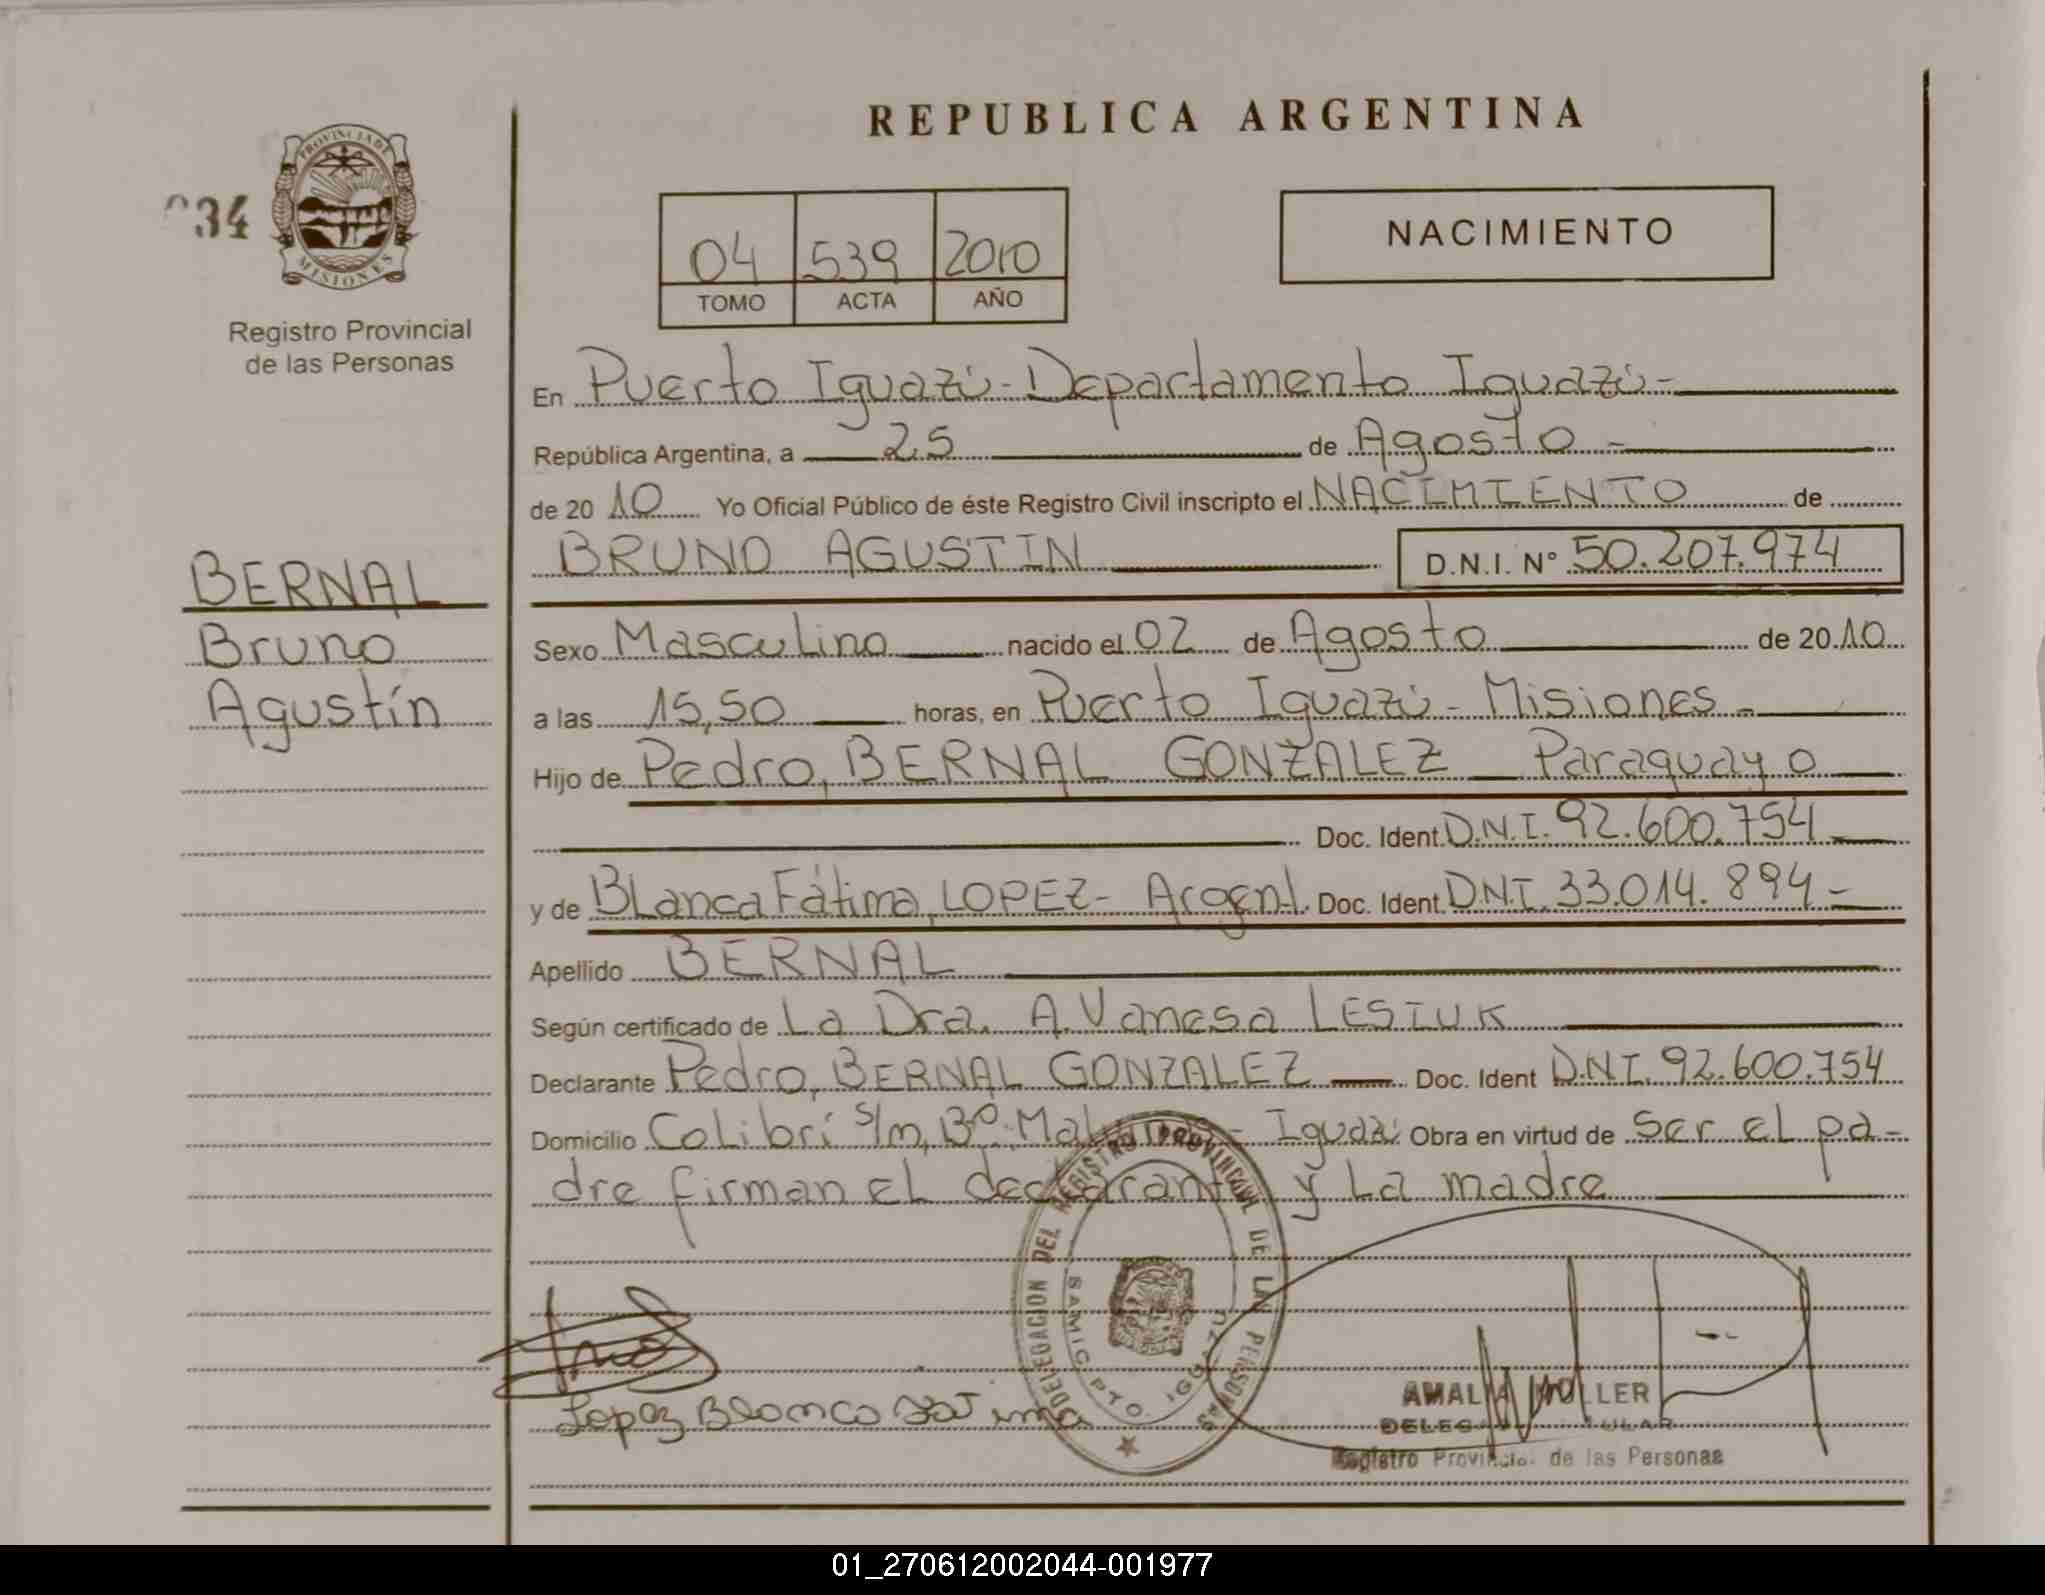 REPUBLICA ARGENTINA
PROVINCIA DE MISIONES
34
Registro Provincial
de las Personas
04 539 2010
TOMO ACTA AÑO
NACIMIENTO
En Puerto Iguazú - Departamento Iguazú -
República Argentina, a 25 de Agosto -
de 2010 Yo Oficial Público de éste Registro Civil inscripto el NACIMIENTO de
BRUNO AGUSTIN D.N.I. N° 50.207.974
BERNAL
Bruno
Agustín
Sexo Masculino nacido el 02 de Agosto de 2010
a las 15,50 horas, en Puerto Iguazú - Misiones -
Hijo de Pedro, BERNAL GONZALEZ Paraguayo
Doc. Ident. D.N.I. 92.600.754
y de Blanca Fátima, LOPEZ - Argent. Doc. Ident. DNI. 33.014.894 -
Apellido BERNAL
Según certificado de La Dra. A. Vanesa LESIUK
Declarante Pedro, BERNAL GONZALEZ Doc. Ident D.N.I. 92.600.754
Domicilio Colibrí s/n, B°. - Iguazú Obra en virtud de ser el pa-
dre firman el declarante y La madre
DELEGACION DEL REGISTRO PROVINCIAL DE LAS PERSONAS
PTO. IGUAZU
Lopez Blanca Fatima
AMALIA MULLER
Registro Provincial de las Personas
01_270612002044-001977